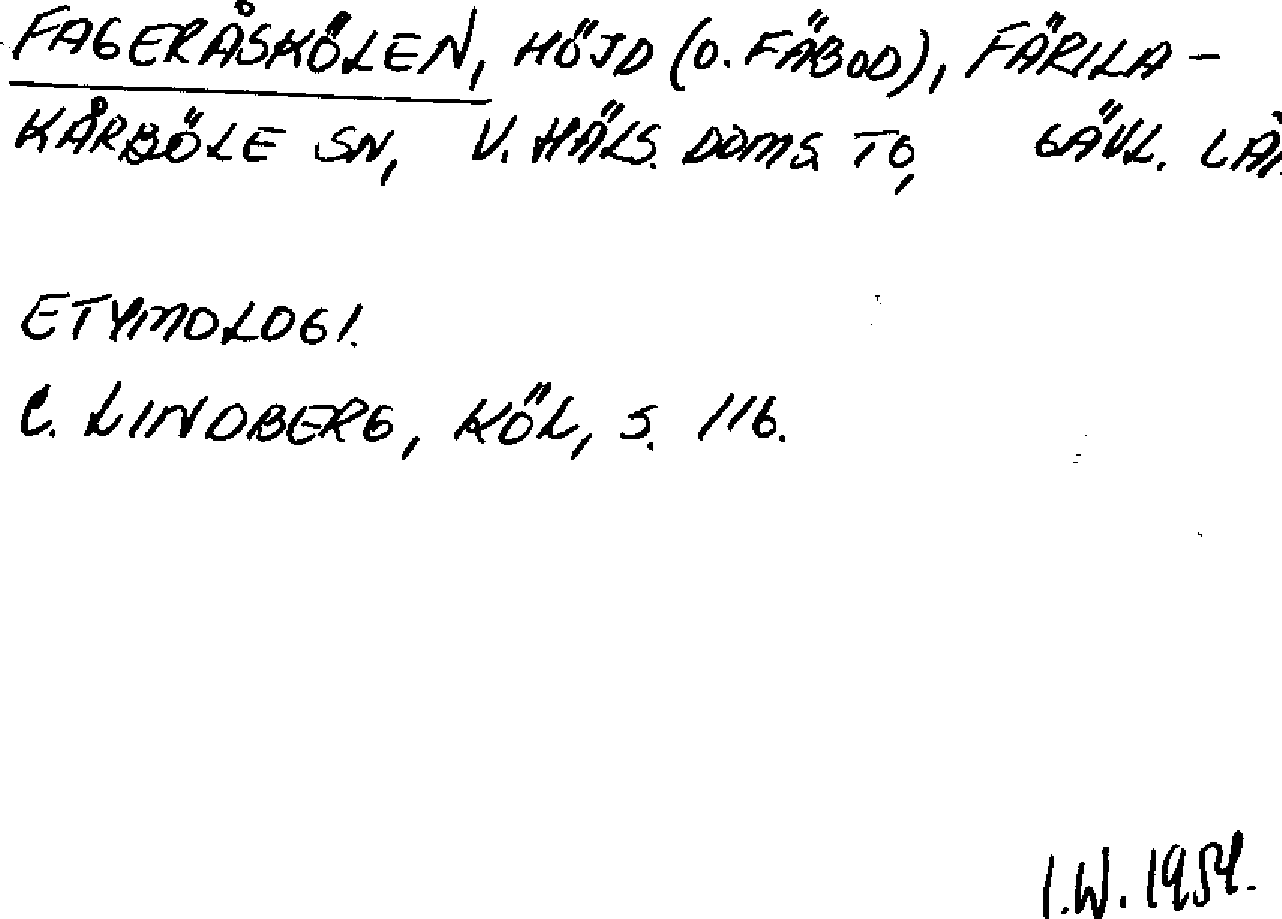 FAGERÅSKÖLEN, HÖJD (O. FÄBOD), FÄRILA-
KÅRBÖLE SN, V. HÄLS. DOMS. TG, GÄVL. LÄN
ETYMOLOGI.
C. LINDBERG, KÖL, S. 116.
I.W. 1954.